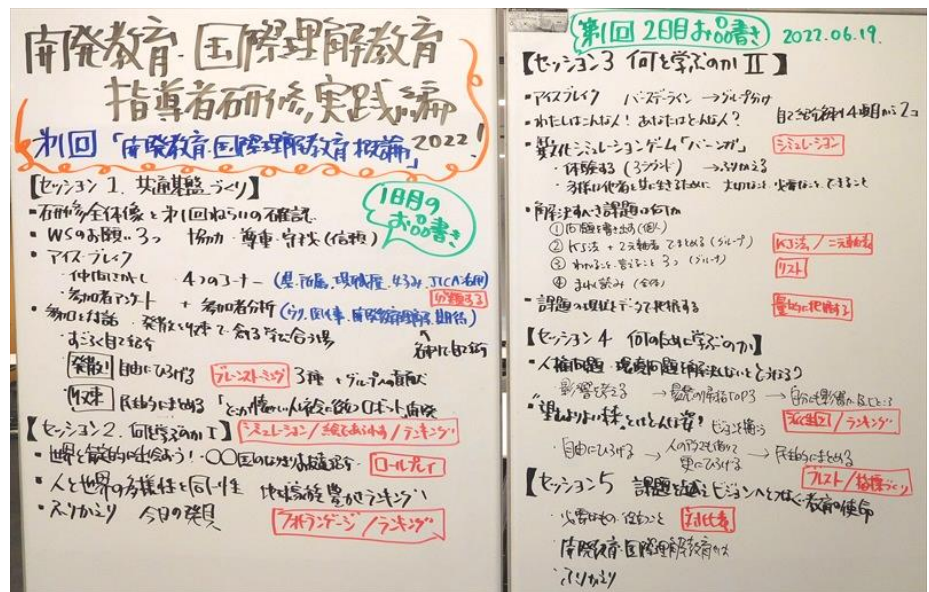 開発教育・国際理解教育
指導者研修 実践編
第1回「開発教育・国際理解教育概論」2022!
【セッション1. 共通基盤づくり】
1日目の
お品書き
・研修全体像と第1回ねらいの確認
・WSのお願い3つ 協力・尊重・守秘(信頼)
・アイス・ブレイク
・仲間さがし ・4つのコーナー
・参加者アンケート + 参加者分析
分類する
・参加と対話・発散と収束で創る学び合う場
・すごろく自己紹介
発散 自由にひろげる ブレーンストーミング 3種 + グループへの貢献
収束 民主的にまとめる
【セッション2. 何を学ぶのか I】 シミュレーション/絵であらわす/ランキング
・世界と能動的に出会おう!・〇〇国のなりきり友達紹介 ロールプレイ
・人と世界の多様性と同一性 地球家族 豊かさランキング
・ふりかえり 今日の発見 フォトランゲージ/ランキング
第1回 2日目お品書き 2022.06.19.
【セッション3 何を学ぶのか II】
・アイスブレイク バースデーライン →グループ分け
・わたしはこんな人! あなたはどんな人?
・異文化シミュレーションゲーム「バーンガ」 シミュレーション
・体験する(3ラウンド) →ふりかえる
・多様な他者と共に生きるために 大切なこと、必要なこと、できること
・解決すべき課題は何か
① 問題を書き出す(個人)
② KJ法+2元軸表でまとめる(グループ) KJ法/二元軸表
③ わかること、言えること 3つ(グループ) リスト
④ まわし読み(全体)
・課題の現状をデータで把握する 量的に把握する
【セッション4 何のために学ぶのか】
・人権問題・環境問題を解決しないとどうなる?
・影響を考える → 最悪の帰結TOP3 → 自分にも影響が及ぶところ
・"望ましい未来"とはどんな姿? ビジョンを描う 派生図/ランキング
・自由にひろげる → 人のアイデアも借りて更にひろげる → 民主的にまとめる
【セッション5 課題を越えビジョンへとつなぐ教育の使命 ブレスト/指標づくり
・必要なもの・役立つこと 対比表
・開発教育・国際理解教育とは
・ふりかえり